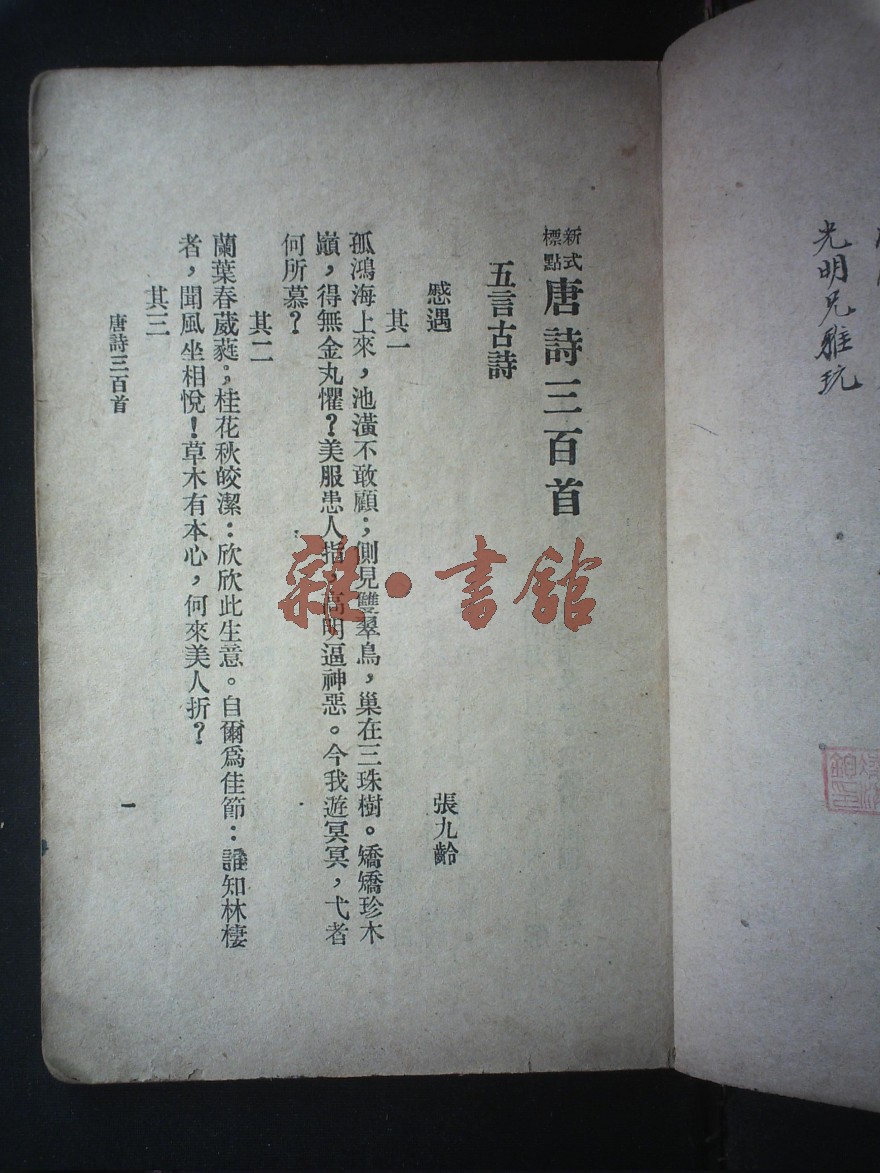 光明兄雅玩
新式標點
唐詩三百首
五言古詩
感遇
張九齡
其一
孤鴻海上來，池潢不敢顧；側見雙翠鳥，巢在三珠樹。矯矯珍木
巔，得無金丸懼？美服患人指，高明逼神惡。今我遊冥冥，弋者
何所慕？
其二
蘭葉春葳蕤。；桂花秋皎潔：欣欣此生意。自爾爲佳節：誰知林棲
者，聞風坐相悅！草木有本心，何來美人折？
其三
唐詩三百首
一
雜·書館